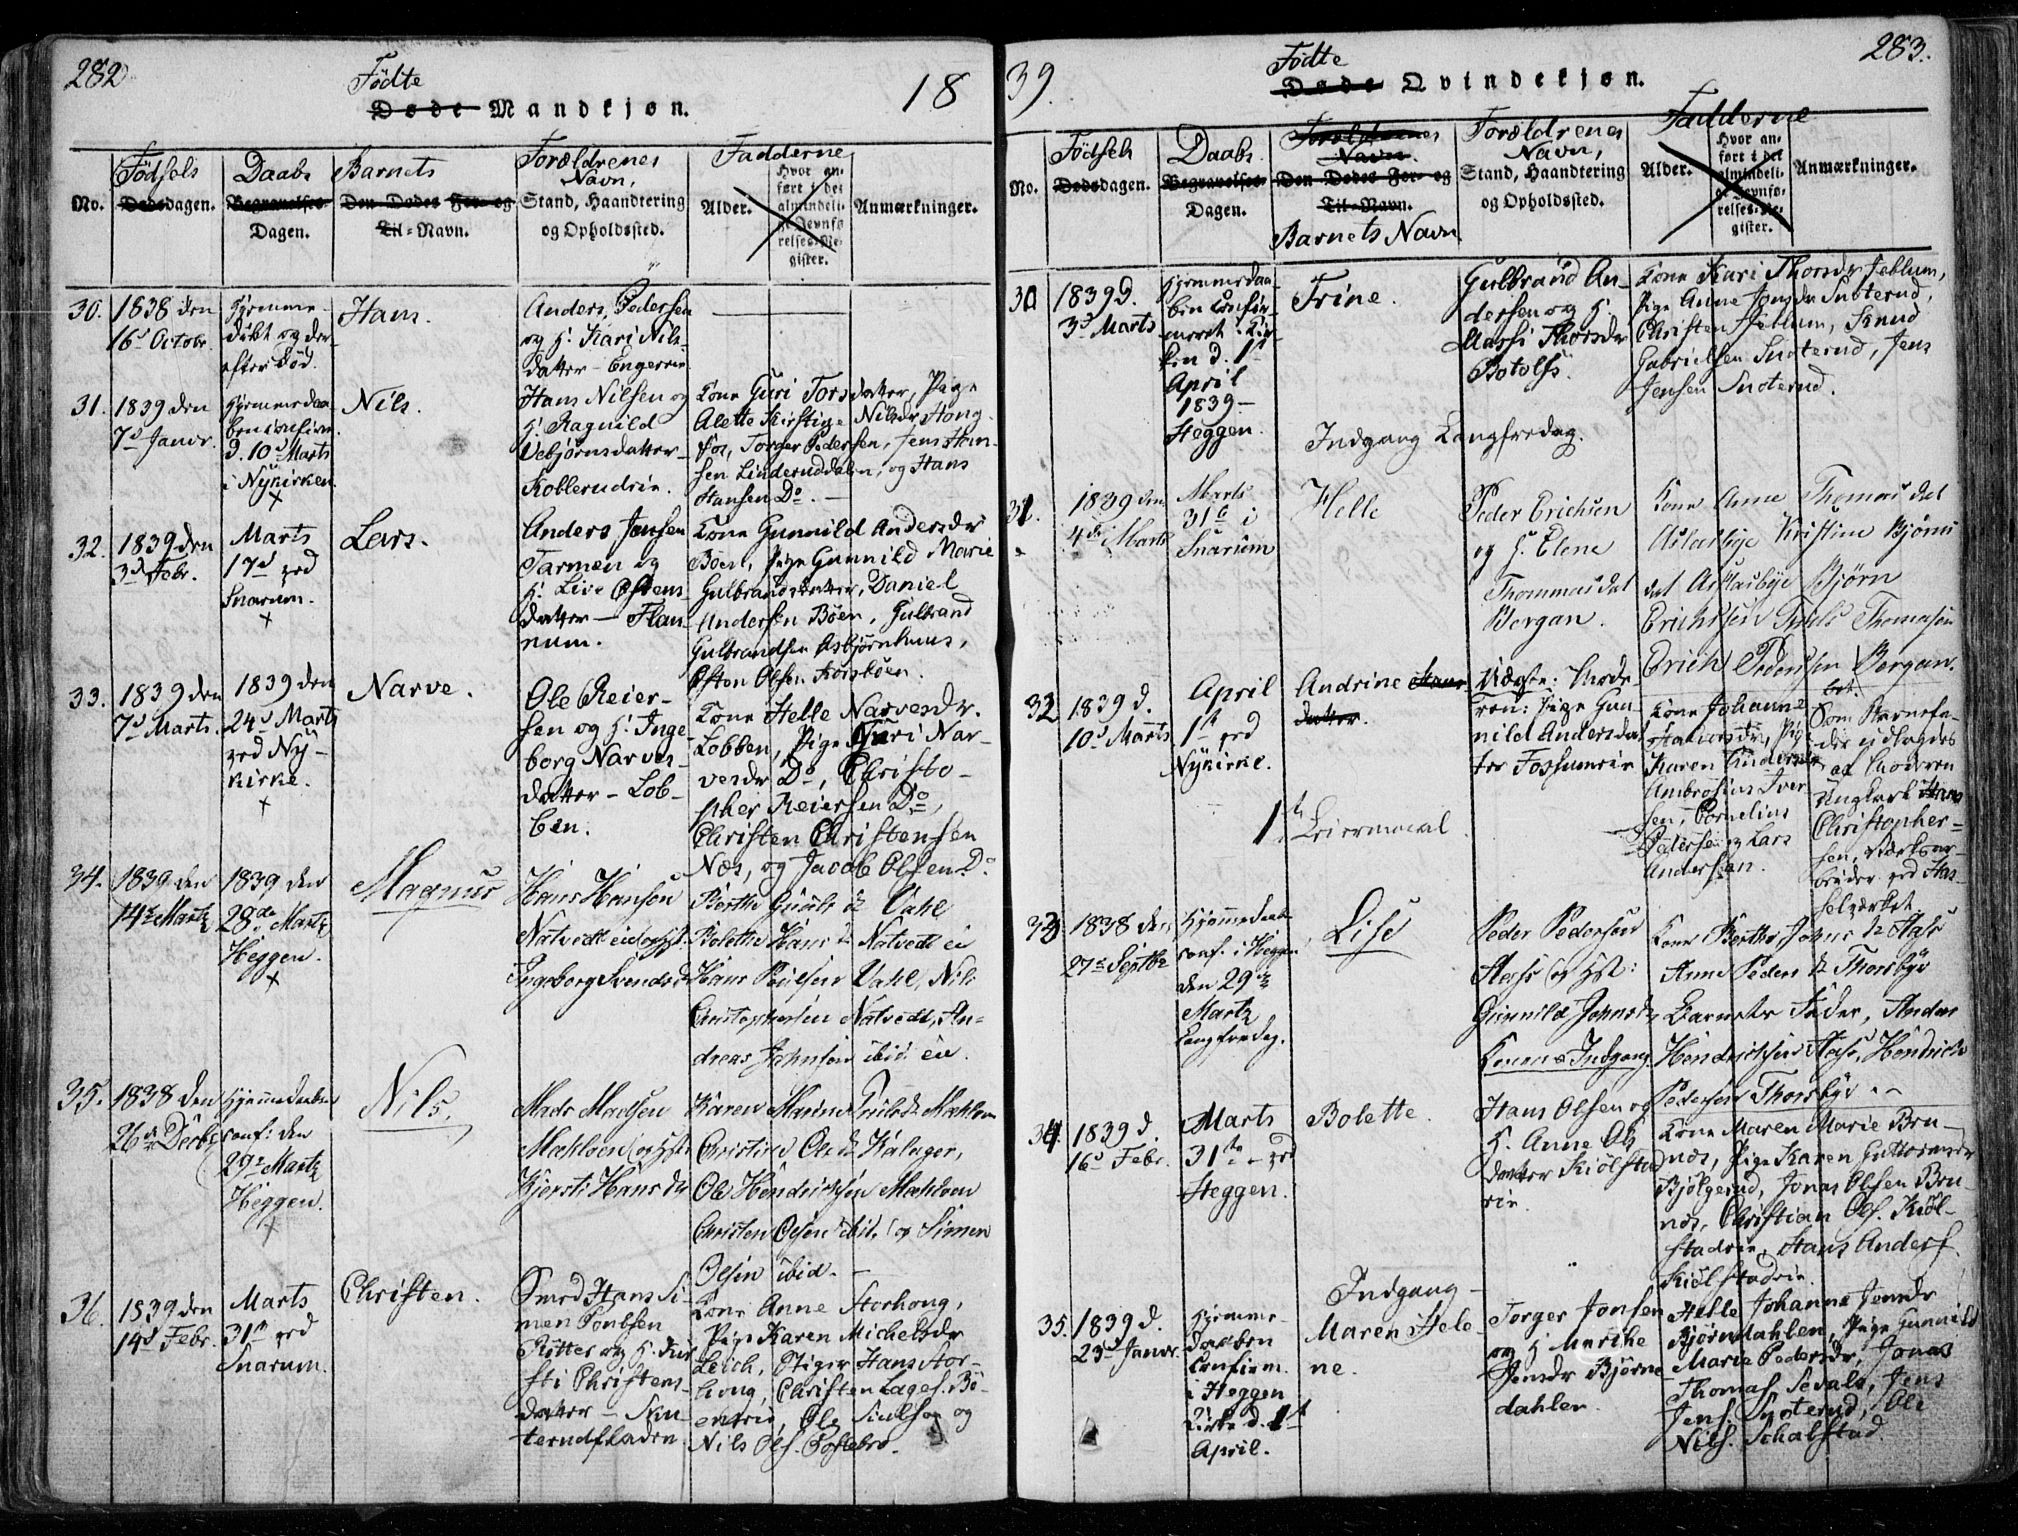 282
Fødte
Døde Mandkjøn.
18
No.
Fødsels
Dødsdagen.
Daabs
Begravelses-
Dagen.
Barnets
Den Dødes For- og
Til-Navn.
Forældrenes
Navn,
Stand, Haandtering
og Opholdssted.
Fadderne
Alder.
Hvor an-
ført i det
almindeli-
ge Jevnfø-
relses-Re-
gister.
Anmærkninger.
30.
1838 den
16d Octobr.
Hjemme-
døbt og der-
efter død.
Hans.
Anders Pedersen
og H. Kari Nils-
datter - Engerrie
31.
1839 den
7d Januar.
Hjemmedaa-
ben confirm.
d. 10d Marts
i Nykirken.
Nils.
Hans Nilsen og
H. Ragnild
Vebjørnsdatter
Koblerudrie.
Kone Guri Torsdatter, Pige
Alette Kirstine Nilsdr Houg-
fos, Torger Pedersen, Jens Han-
sen Linderuddalen, og Hans
Hansen Do. -
32.
1839 den
3d Febr.
Marts
17d ved
Snarum.
Lars.
Anders Jensen
Tarmen og
H. Live Øftens-
datter - Flan-
num.
Kone Gunnild Andersdr
Boen, Pige Gunnild Marie
Gulbrandsdatter, Daniel
Andersen Bøen, Gulbrand
Gulbrandsen Asbjørnhuus,
Øften Olsen Korsbøen.
33.
1839 den
7d Marts.
1839 den
24d Marts
ved Ny-
kirke.
Narve.
Ole Reier-
sen og H. Inge-
borg Narves-
datter - Lob-
ben.
Kone Helle Narvesdr.
Lobben, Pige Guri Nar-
vesdr Do, Christo-
pher Reiersen Do,
Christen Christensen
Næs, og Jacob Olsen Do
34.
1839 den
14de Martz
1839 den
28de Martz
Heggen.
Magnus
Hans Hansen
Natvedt eie og Hst.
Ingeborg Svends D
Berthe Vahl
Bolethe Hans D Natvedt ei
Hans Poulsen Vahl, Nils
Christophersen Natvedt, An-
dreas Jahnsen ibid: eie.
35.
1838 den
26de Decbr
Hjemmedaaben
conf: den
29de Martz
Heggen.
Nils.
Mads Madsen
Mæhlum og Hst:
Kjersti Hans Dr
Karen Marine Truls D Mæhlum
Christine Ole D Kalager,
Ole Hendrichsen Mæhlum
Christen Olsen ibid. og Simen
Olsen ibid. -
36.
1839 den
14d Febr.
Marts
31te ved
Snarum.
Christen.
Smed Hans Si-
men Poulsen
Ritter og H. Kir-
sti Christens-
datter - Snu-
terudfladen.
Kone Anne Storhoug,
Pige Karen Michelsdr
Leich, Stiger Hans Stor-
houg, Christen Lages. Bø-
enrie, Ole Siulse og
Nils Ols. Poslebro.
39.
283.
Fødte
Døde Qvindekjøn.
No.
Fødsels
Dødsdagen.
Daabs.
Begravelses-
Dagen.
Forældrenes
Navn.
Den Dødes For- og
Til-Navn.
Barnets Navn
Forældrenes
Navn,
Stand, Haandtering
og Opholdssted.
Fadderne
Alder.
Hvor an-
ført i det
almindeli-
ge Jevnfø-
relses-Re-
gister.
Anmærkninger.
30
1839 d.
3d Marts
Hjemmedaa-
ben confir-
meret i Kir-
ken d. 1st
April
1839 -
Heggen.
Trine.
Gulbrand An-
dersen og H.
Massi Thorsdr
Botolfs.
Kone Kari Thorsdr Feblum,
Pige Anne Jensdr Snoterud,
Christen Feblum, Knud
Gabrielsen Snoterud, Jens
Jensen Snoterud.
Indgang Langfredag.
31.
1839 den
4de Marts
Marts
31te i
Snarum
Helle
Peder Erichsen
og H. Elene
Thommesdat
Bergan.
Kone Anne Thomesdat
Aslasbye Kristine Bjørns
dat Aslasbye Bjørn
Erichssen Truls Thomasen
Erich Pederssen Bergan.
32
1839 d.
10d Marts
April
1st ved
Nykirke.
Andrine Hans
datter.
Uægte: Mode-
ren: Pige Gun-
nild Andersdat-
ter Fossumeie
Kone Johanne
Hansdr, Pige
Karen Andersdr
Ambrosius Iver-
sen, Cornelius
Pedersen og Lars
Andersen.
Som Barnefa-
der udlagdes
af Moderen
Ungkarl Hans
Christopher-
sen, Værksar-
beider ved Has-
selværket.
1st Leiermaal
33
1838 den
27de Septbr
Hjemmedaaben
conf. i Heggen
den 29de
Martz
Langfredag.
Lise
Peder Pedersen
Aass og Hst:
Gunnild Johnsdr
Konens Indgang
Kone Berthe Johns D Aass
Anne Peders D Thorsbye
Barnets Fader, Anders
Hendrichsen Aass, Hendrich
Pedersen Thorsbye
34.
1839 d.
16d Febr.
Marts
31te - ved
Heggen.
Bolette.
Hans Olsen og
H. Anne Ols
datter Kiølstad-
rie.
Kone Maren Marie Bru-
næs, Pige Karen Guttormsdr
Bjølgerud, Jonas Olsen Bru-
næs, Christian Ols. Kiøl-
stadrie, Hans Anders.
Kiølstadrie.
Indgang -
35.
1839 d.
23d Januar.
Hjemme-
daaben
confirm.
i Heggen
Kirke d. 1st
April.
Maren Hele-
ne.
Torger Jonsen
og H. Marthe
Jensdr Bjørne-
dahlen.
Helle Johanne Jensdr
Bjørndahlen, Pige Gunnild
Marie Pedersdr, Jonas
Thomas. Sevale, Jens
Jens. Snoterud, Ole
Nils. Schalstad.